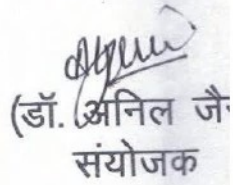 (डॉ. अनिल
संयोजक